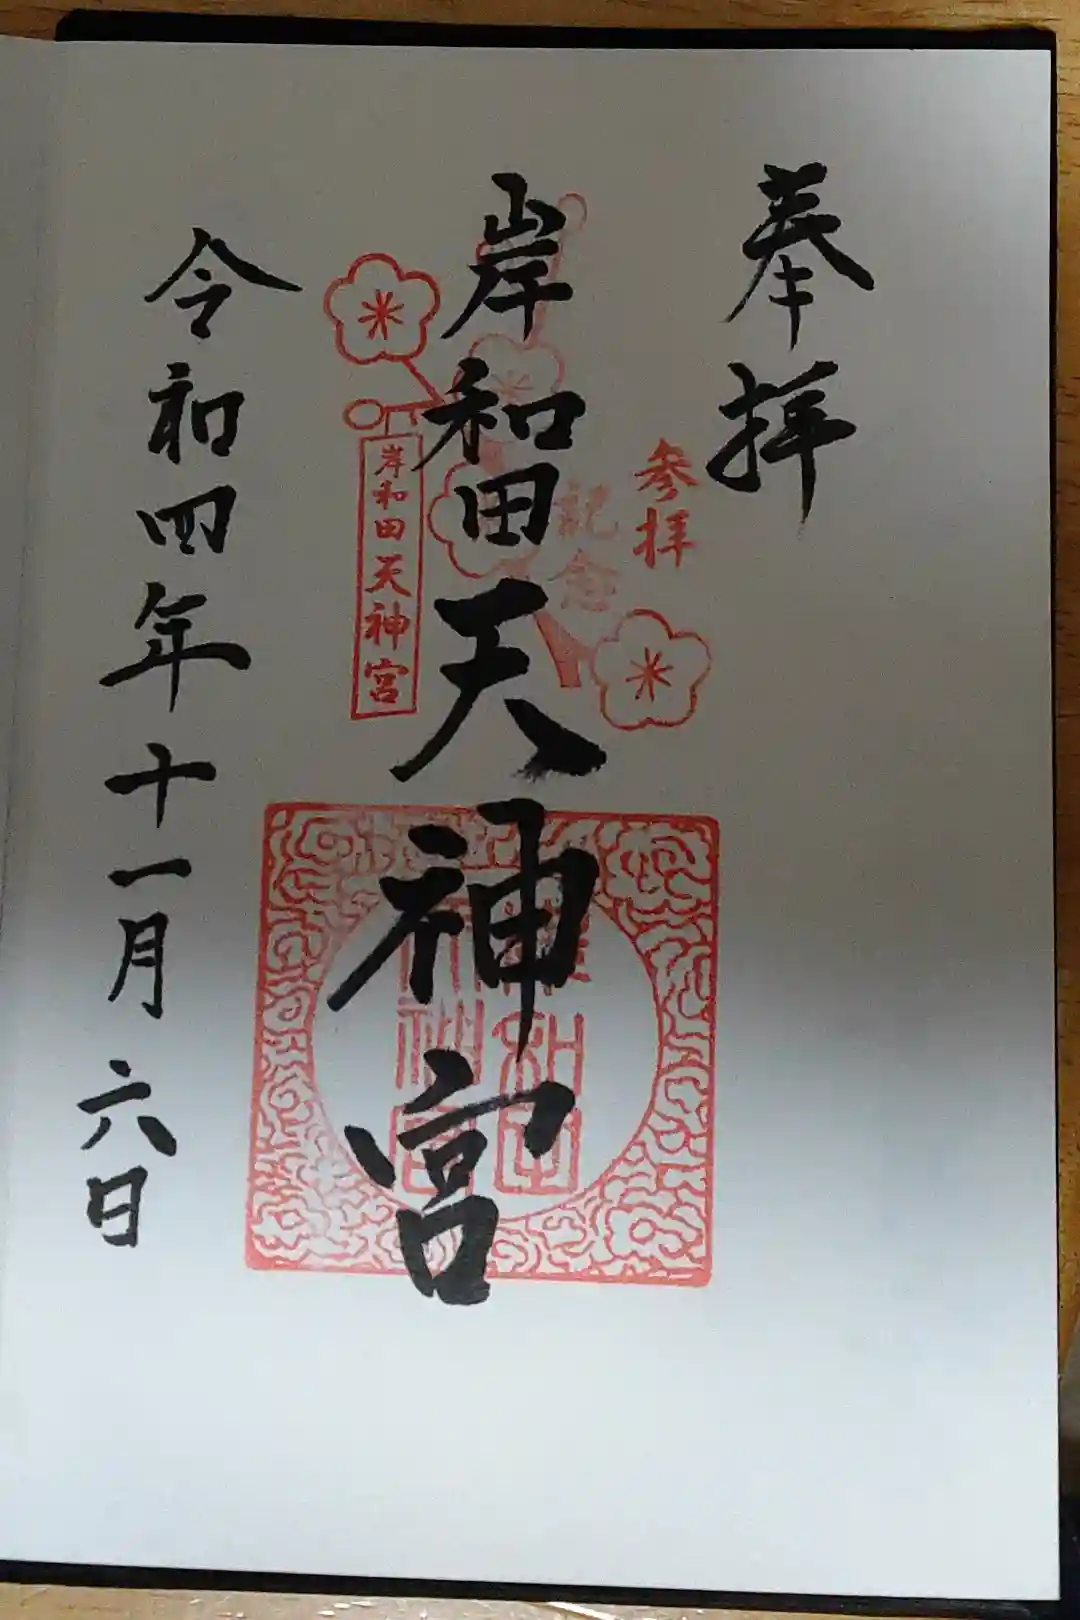 奉拝
参拝
記念
岸和田天神宮
岸和田天神宮
令和四年十一月六日